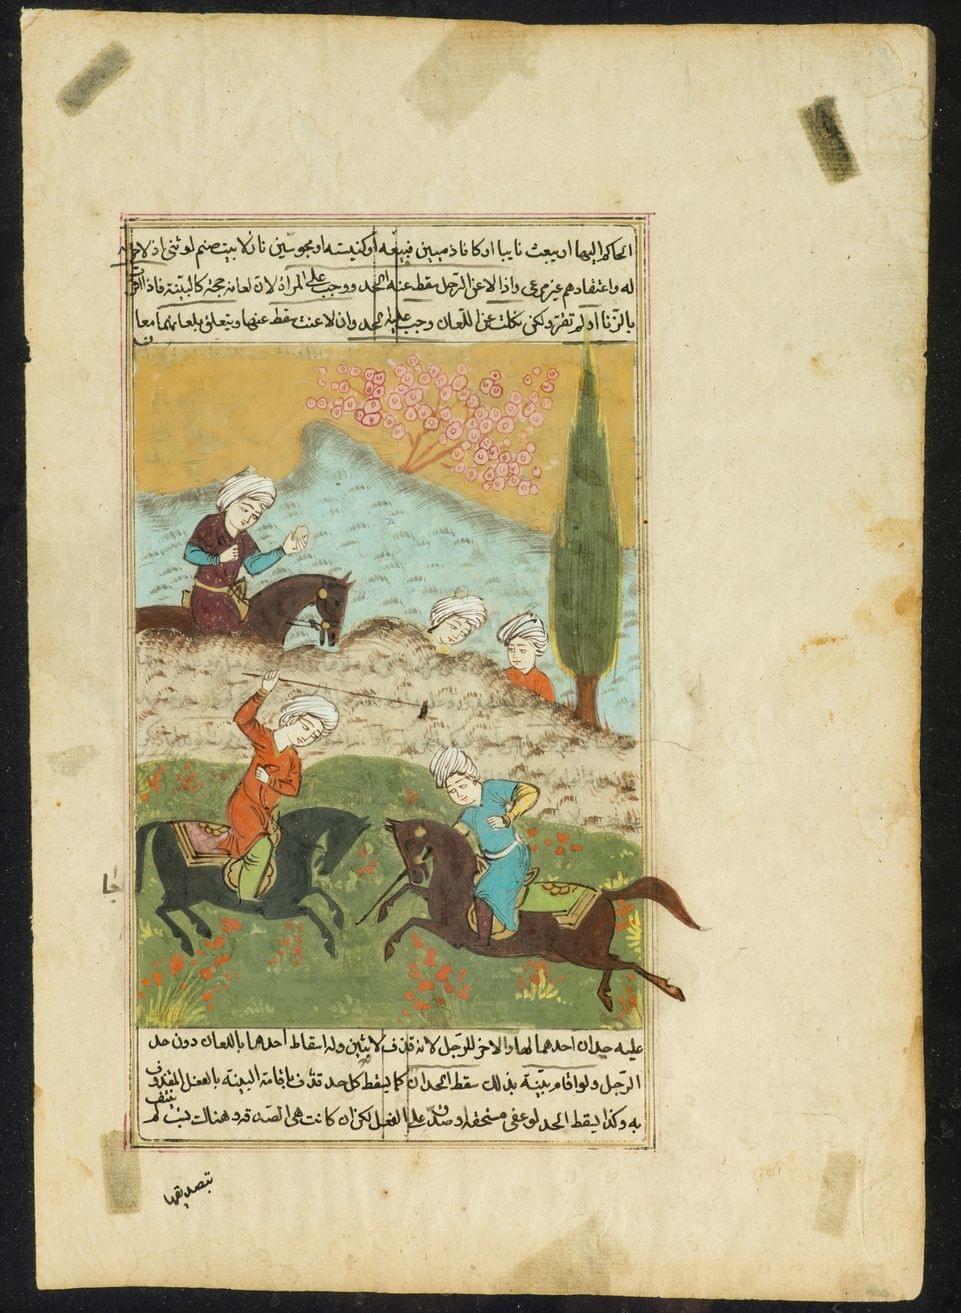 الحاكم اليهما او يبعث نايبا او كانا ذميين فبيعه او كنيسته او مجوسيين نار لا بيت صنم لوثنى اذ لا حرمة
له واعتقادهم غير مرعى واذا لاعن الرجل سقط عنه الحد ووجب على المراة لان لعانه حجة كالبينة فاذا اقرت
بالزنا او لم تقر ولكن نكلت عن اللعان وجب عليها الحد وان لاعنت سقط عنها ويتعلق بلعانهما معا
عليه حدان احدهما لها والاخر للرجل لانه قذف لاثنين وله اسقاط احدهما باللعان دون حد
الرجل ولو اقام بينة بذلك سقط الحدان كما يسقط كل حد قذف باقامة البينة بالفعل المقذوف
به وكذا يسقط الحد لو عفى مستحقه او صدق على الفعل لكن ان كانت هى المصدقة وهناك نسب لم ينتف
بتصديقها